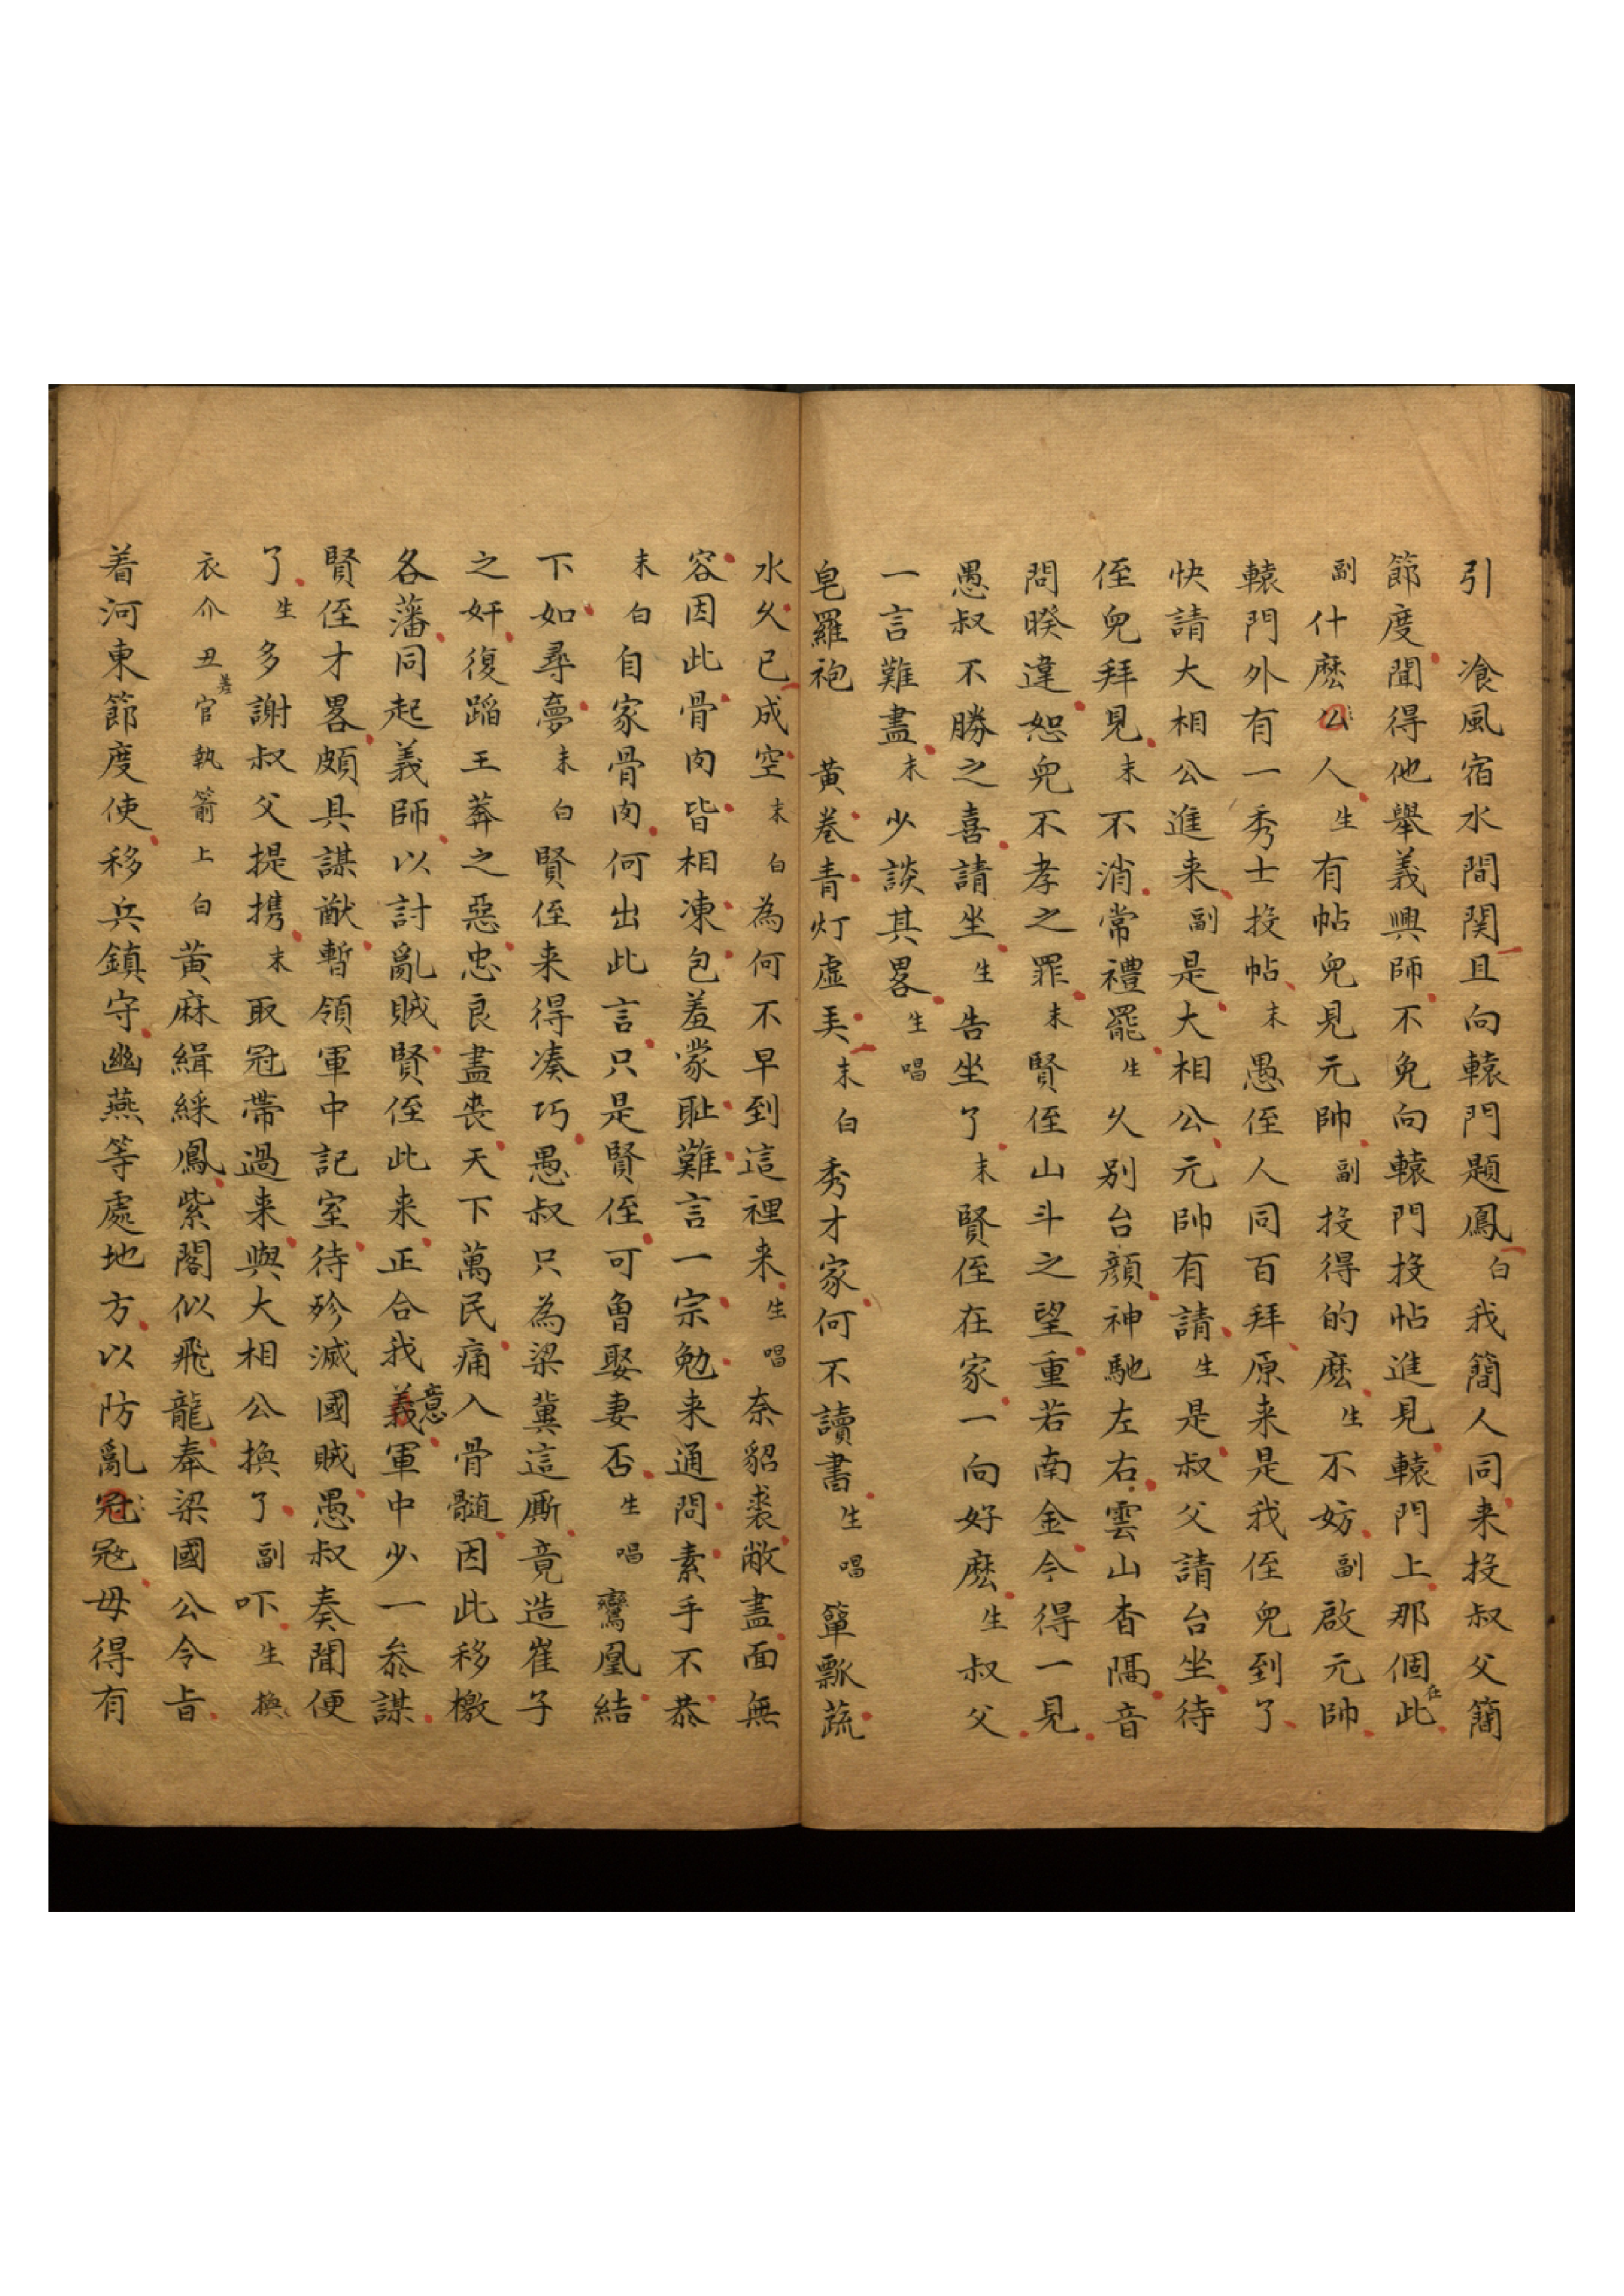 引　飡風宿水間関且向轅門題鳳白我簡人同来投叔父簡
節度聞得他舉義興師不免向轅門投帖進見轅門上那個在此
副什麽公人生有帖兒見元帥副投得的麽生不妨副啟元帥
轅門外有一秀士投帖末愚侄人同百拜原来是我侄兒到了
快請大相公進来副是大相公元帥有請生是叔父請台坐待
侄兒拜見末不消常禮罷生久别台顏神馳左右雲山杳隔音
問暌違恕兒不孝之罪末賢侄山斗之望重若南金今得一見
愚叔不勝之喜請坐生告坐了末賢侄在家一向好麽生叔父
一言難盡末少談其畧生唱
皂羅袍　黄卷青灯虛美末白秀才家何不讀書生唱簞瓢蔬
水久已成空末白為何不早到這裡来生唱奈貂裘敝盡面無
容因此骨肉皆相凍包羞蒙耻難言一宗勉来通問素手不恭
末白自家骨肉何出此言只是賢侄可曾娶妻否生唱鸞凰結
下如尋夢末白賢侄来得凑巧愚叔只為梁冀這厮竟造崔子
之奸復蹈王莽之惡忠良盡丧天下萬民痛入骨髄因此移檄
各藩同起義師以討亂賊賢侄此来正合我義意軍中少一叅謀
賢侄才畧頗具謀猷暫領軍中記室待殄滅國賊愚叔奏聞便
了生多謝叔父提携末取冠帶過来與大相公換了副吓生換
衣介丑差官執箭上白黄麻緝綵鳳紫閣似飛龍奉梁國公令旨
着河東節度使移兵鎮守幽燕等處地方以防亂冠冦毋得有